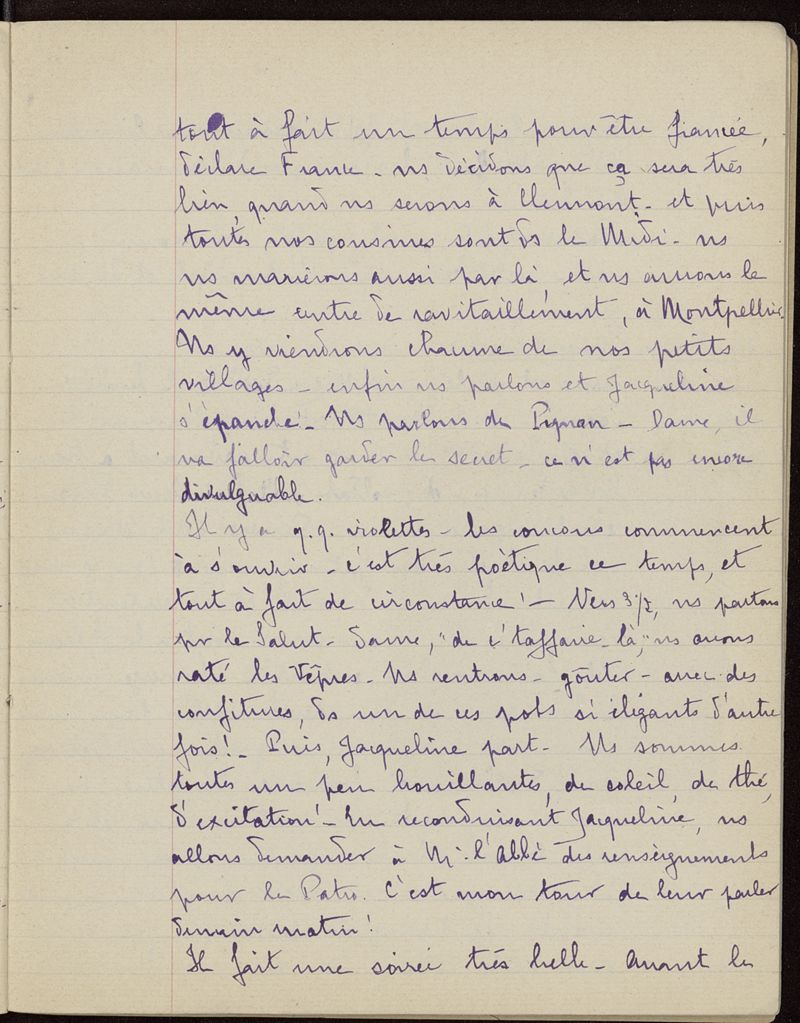 tout à fait un temps pour être fiancée,
déclare France - ns décidons que ça sera très
bien, quand ns serons à Clermont - et puis
toutes nos cousines sont ds le Midi - ns
ns marierons aussi par là, et ns aurons le
même centre de ravitaillement, à Montpellier.
Ns y viendrons chacune de nos petits
villages - enfin ns parlons et Jacqueline
s'épanche! - Ns parlons de Pignan - Dame, il
va falloir garder le secret - ce n'est pas encore
divulguable.
Il y a q.q. violettes - les coucous commencent
à s'ouvrir - c'est très poètique ce temps, et
tout à fait de circonstance! - Vers 3 1/2, ns partons
pr le Salut - Dame, "de c't'affaire-là", ns avons
raté les Vêpres - Ns rentrons - goûter - avec des
confitures, ds un de ces pots si élégants d'autre
fois! - Puis, Jacqueline part - Ns sommes
toutes un peu bouillantes, de soleil, de thé,
d'excitation! - En reconduisant Jacqueline, ns
allons demander à Mr. l'Abbé des renseignements
pour le Patro. C'est mon tour de leur parler
demain matin!
Il fait une soirée très belle - Avant le